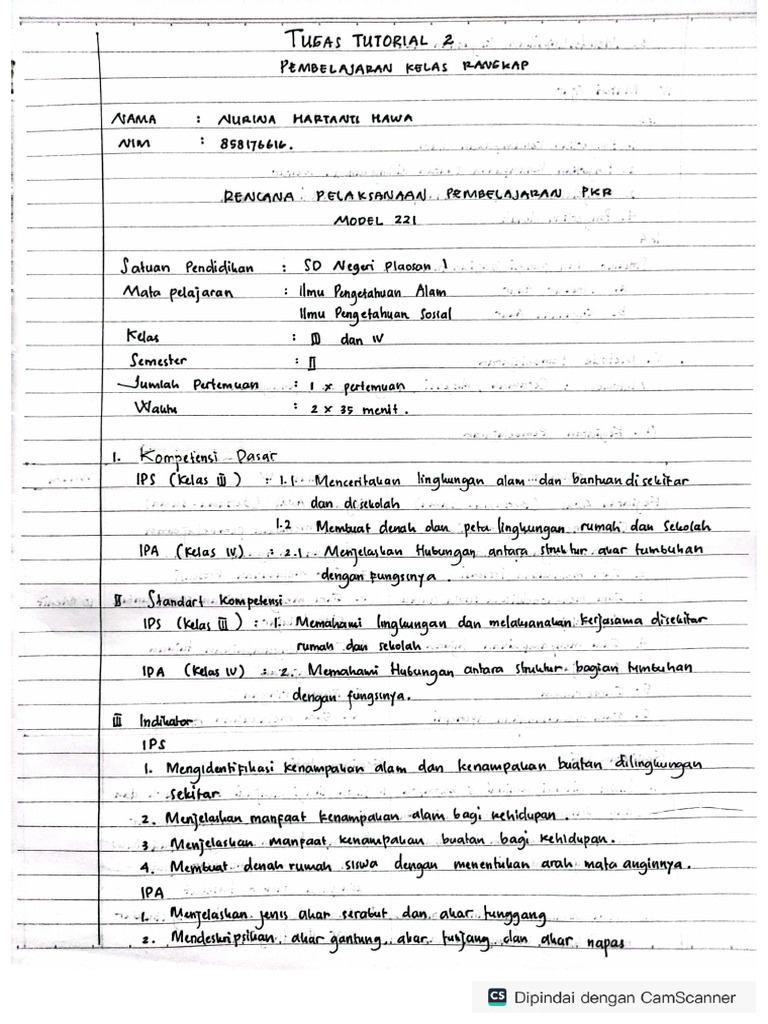 TUGAS TUTORIAL 2
PEMBELAJARAN KELAS RANGKAP
NAMA : NURINA HARTANTI HAWA
NIM : 858176616.
RENCANA PELAKSANAAN PEMBELAJARAN PKR
MODEL 221
Satuan Pendidikan : SD Negeri Plaosan 1
Mata pelajaran : Ilmu Pengetahuan Alam
Ilmu Pengetahuan Sosial
Kelas : III dan IV
Semester : II
Jumlah Pertemuan : 1 x pertemuan
Waktu : 2 x 35 menit.
I. Kompetensi Dasar
IPS (Kelas III) : 1.1 Menceritakan lingkungan alam dan bantuan disekitar
dan disekolah
1.2 Membuat denah dan peta lingkungan rumah dan Sekolah
IPA (Kelas IV) : 2.1 Menjelaskan Hubungan antara struktur akar tumbuhan
dengan fungsinya.
II Standart Kompetensi
IPS (Kelas III) : 1. Memahami lingkungan dan melaksanakan kerjasama disekitar
rumah dan sekolah
IPA (Kelas IV) : 2. Memahami Hubungan antara struktur bagian tumbuhan
dengan fungsinya.
III Indikator
IPS
1. Mengidentifikasi kenampakan alam dan kenampakan buatan dilingkungan
sekitar
2. Menjelaskan manfaat kenampakan alam bagi kehidupan.
3. Menjelaskan manfaat kenampakan buatan bagi kehidupan.
4. Membuat denah rumah siswa dengan menentukan arah mata anginnya.
IPA
1. Menjelaskan jenis akar serabut dan akar tunggang
2. Mendeskripsikan akar gantung, akar tunjang dan akar napas
CS Dipindai dengan CamScanner